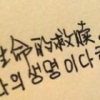 生命的救赎
의 생명이다